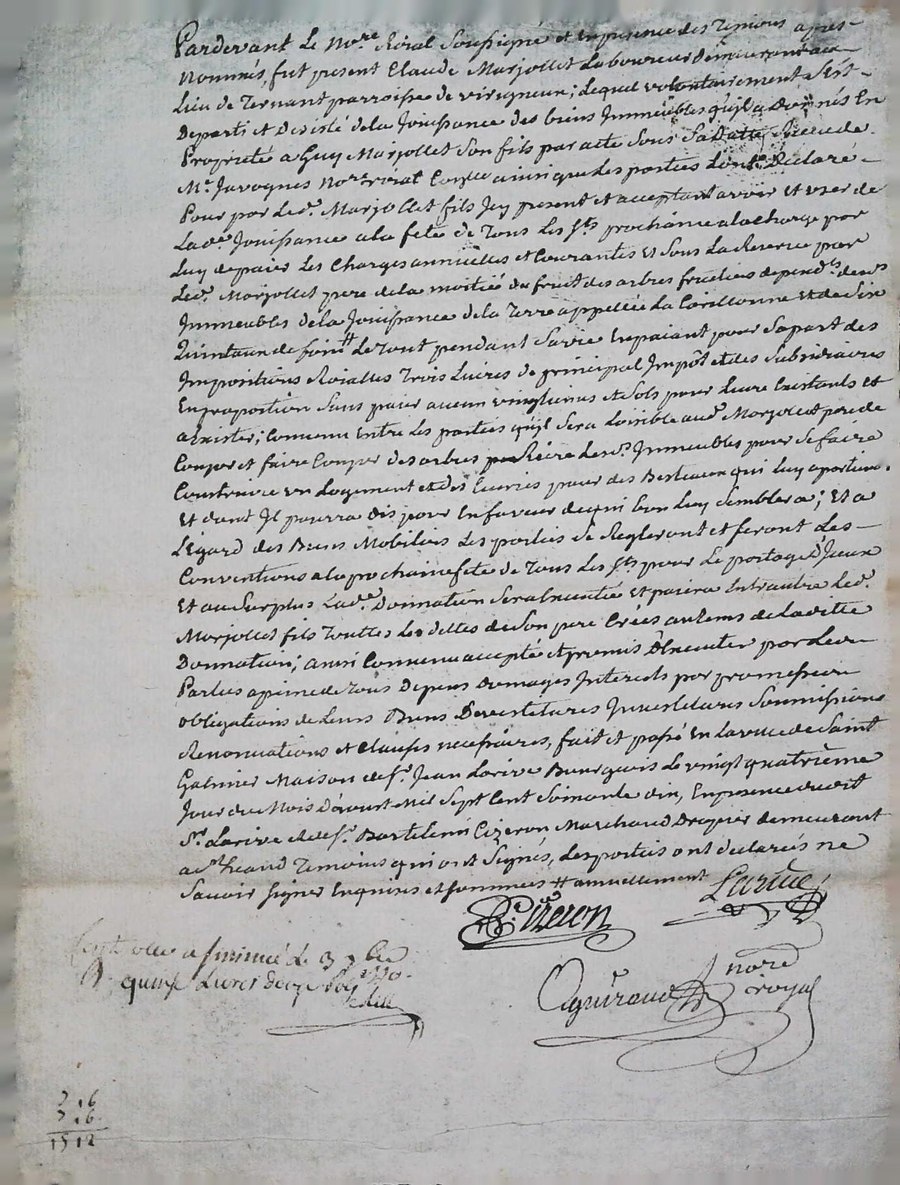 Pardevant Le Nore Roial Soussigné et En presence des Temoins apres-
Nommés, fut present Claude Marjollet Laboureur demeurant au
Lieu de Ternant parroisse de virigneux; Lequel volontairement s'est-
Departi et Desisté de la Jouissance des biens Immeubles qu'il a Donnés En
Propriété a Guy Marjollet son fils par acte sous sa Datte Receu de
Me. Javognes Nore. roial Controllé ainsi que Les parties L'ont Declaré-
Pour par Led. Marjollet fils Icy present et acceptant avoir et User de
Lade. Jouissance a la fete de Tous Les Sts prochaine a la charge par
Luy de paier Les Charges annuelles et Courantes Et sous La Reserve par
Led. Marjollet pere de la moitié du fruit des arbres fruitiers dependts. desds
Immeubles de la Jouissance de la Terre appellée La Carillonne et de Six
Quintaux de foin # Le tout pendant Sa vie En paiant pour sa part des
Impositions Roialles Trois Livres de principal Impôt et des Subsidiaires
En proportion Sans paier aucun vingtieme et Sols pour Livre Existants et
a Exister; Convenu Entre Les parties qu'il Sera Loisible aud. Marjollet pere de
Couper et faire Couper des arbres Riere Lesds. Immeubles pour Se faire
Construire un Logement et des Ecuries pour des Bestiaux qui Luy apartien.
Et dont Il pourra Disposer En faveur de qui bon Luy Semblera; Et a
L'Egard des Biens Mobiliers Les parties Se Regleront et feront Les-
Conventions a la prochaine fete de Tous Les Sts pour Le partage D'Iceux
Et au Surplus Lade. Donnation Sera Executée et paiera Entr'autre Led.
Marjollet fils Touttes Les dettes de Son pere Créés au tems de Laditte
Donnation; ainsi Convenu accepté et promis D'Executer par Les
Parties a peine de Tous Depens Domages Interets par promession
obligations de Leurs Biens Devestitures Investitures Soumissions
Renonciations et Clauses necessaires, fait et passé En La ville de Saint
Galmier Maison de Sr. Jean Larive Bourgeois Le vingt quatrieme
Jour du Mois D'aoust Mil Sept Cent Soixante dix, En presence dudit
Sr. Larive et de Sr. Bartelemi Cizeron Marchand Droguier demeurant
aud. Temoins qui ont Signés, Les parties ont declarés ne
Savoir Signer Enquises et Sommées # annuellement
Larive
B. Cizeron
Aguiraud nore
royal
Controllé a St Galmier Le 3 7bre
1770.
quinze Livres douze Sols
7 16
7 16
15 12